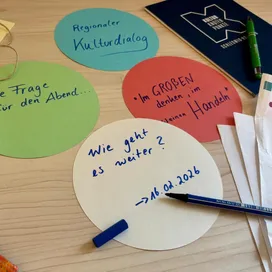 Regionaler
Kulturdialog
e Frage
für den Abend...
"Im GROßEN
denken, im
kleinen
Handeln"
Wie geht
es weiter?
→ 16.02.2026